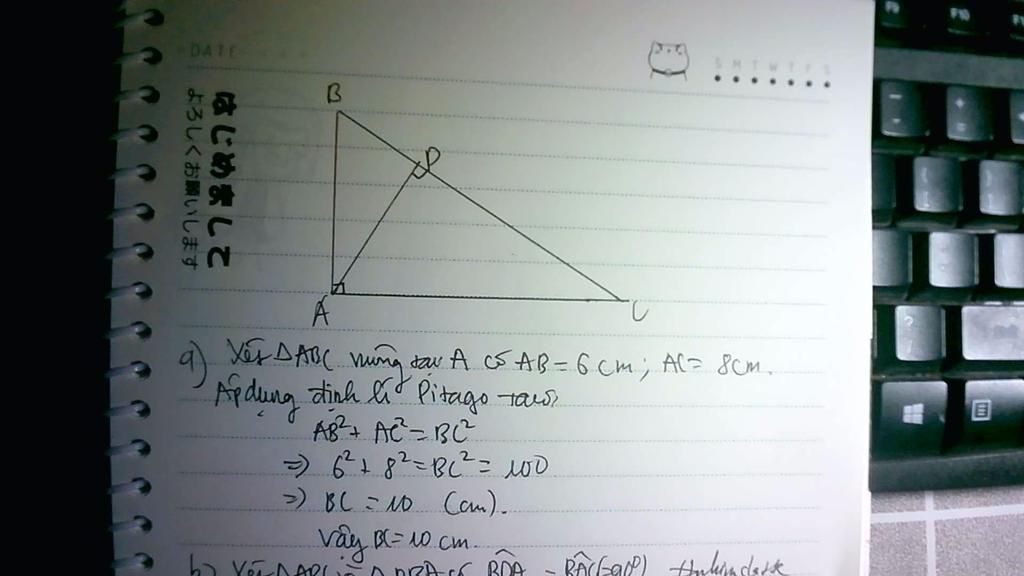 DATE
S M T W T F S
はじめまして
よろしくお願いします
B
D
A
C
a) Xét ΔABC vuông tại A có AB = 6 cm; AC = 8cm.
Áp dụng định lí Pitago ta có
AB² + AC² = BC²
=> 6² + 8² = BC² = 100
=> BC = 10 (cm).
Vậy BC = 10 cm.
b) Xét ΔABC và ΔDBA có BDA = BAC (=90⁰)
F9
F10